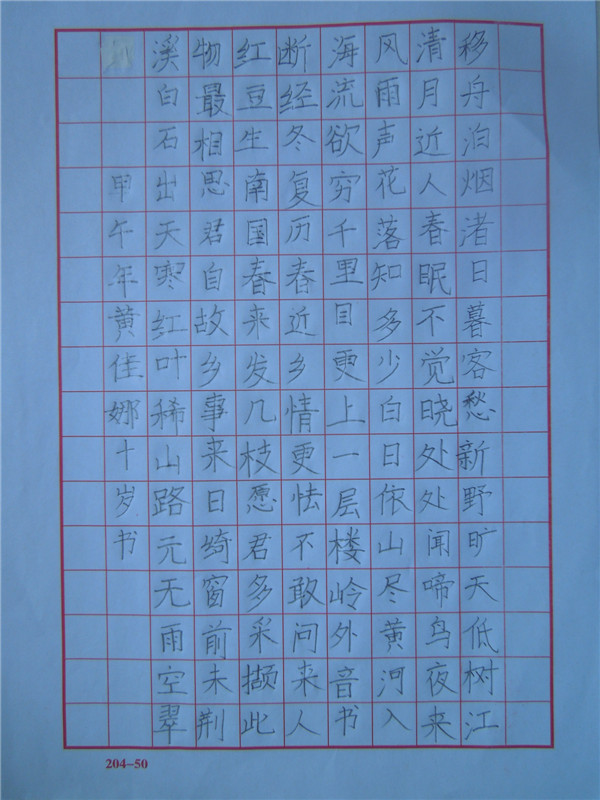 移舟泊烟渚日暮客愁新野旷天低树江
清月近人春眠不觉晓处处闻啼鸟夜来
风雨声花落知多少白日依山尽黄河入
海流欲穷千里目更上一层楼岭外音书
断经冬复历春近乡情更怯不敢问来人
红豆生南国春来发几枝愿君多采撷此
物最相思君自故乡事来日绮窗前未荆
溪白石出天寒红叶稀山路元无雨空翠
甲午年黄佳娜十岁书
204-50